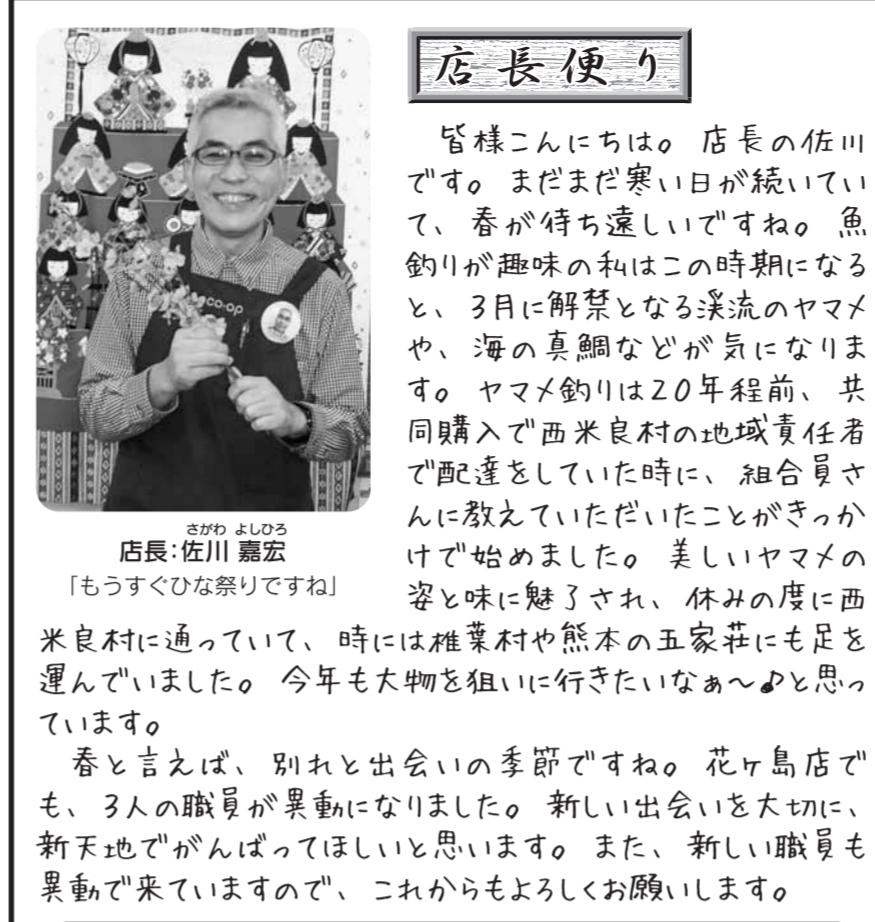 店長便り
皆様こんにちは。店長の佐川
です。まだまだ寒い日が続いてい
て、春が待ち遠しいですね。魚
釣りが趣味の私はこの時期になる
と、3月に解禁となる渓流のヤマメ
や、海の真鯛などが気になりま
す。ヤマメ釣りは20年程前、共
同購入で西米良村の地域責任者
で配達をしていた時に、組合員さ
んに教えていただいたことがきっか
けで始めました。美しいヤマメの
姿と味に魅了され、休みの度に西
米良村に通っていて、時には椎葉村や熊本の五家荘にも足を
運んでいました。今年も大物を狙いに行きたいなぁ～♪と思っ
ています。
春と言えば、別れと出会いの季節ですね。花ヶ島店で
も、3人の職員が異動になりました。新しい出会いを大切に、
新天地でがんばってほしいと思います。また、新しい職員も
異動で来ていますので、これからもよろしくお願いします。
co-op
さがわ よしひろ
店長:佐川 嘉宏
「もうすぐひな祭りですね」